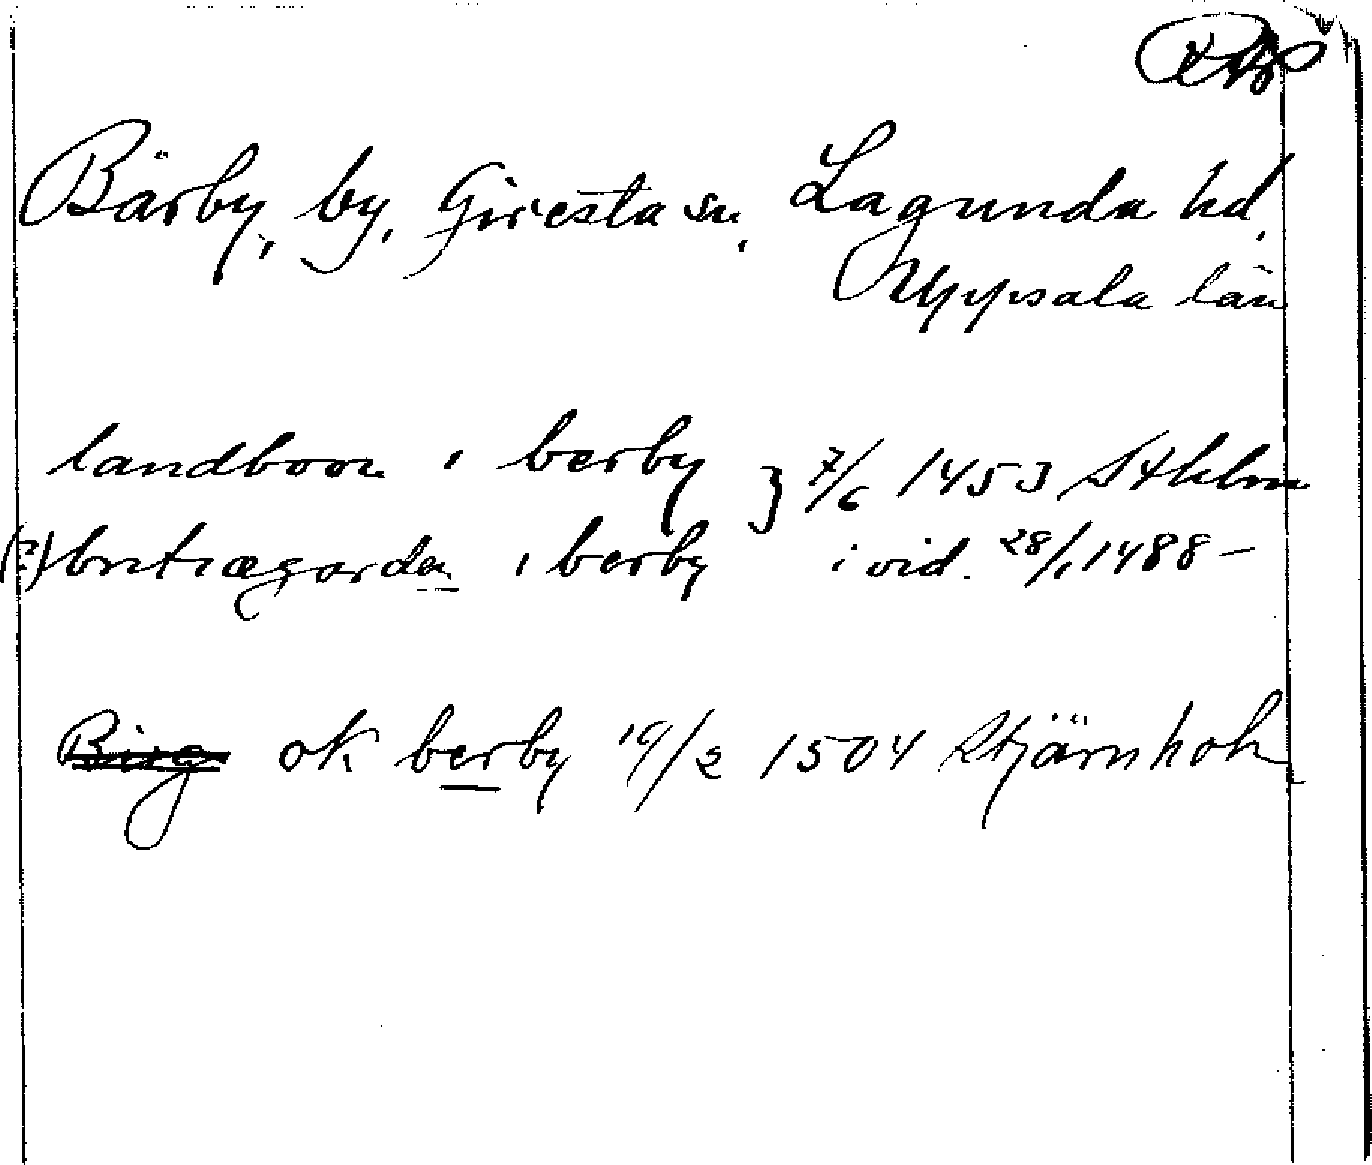 Bärby, by, Giresta sn, Lagunda hd,
Uppsala län
landboon i berby } 7/6 1453 Sthlm
(?) brutrægarden i berby i vid. 28/1 1488 –
Birg ok berby 19/2 1504 Stjärnholm